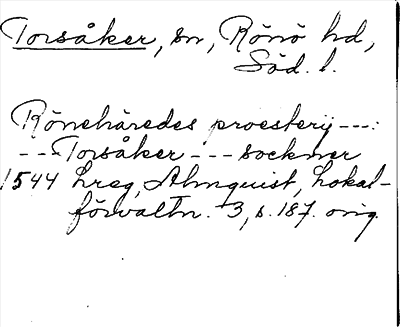 Torsåker, sn, Rönö hd,
Söd. l.
Rönehäredes proesterij ---:
--- Torsåker --- sockner
1544 hreg, Almquist, Lokal-
förvaltn. 3, s. 187. orig.